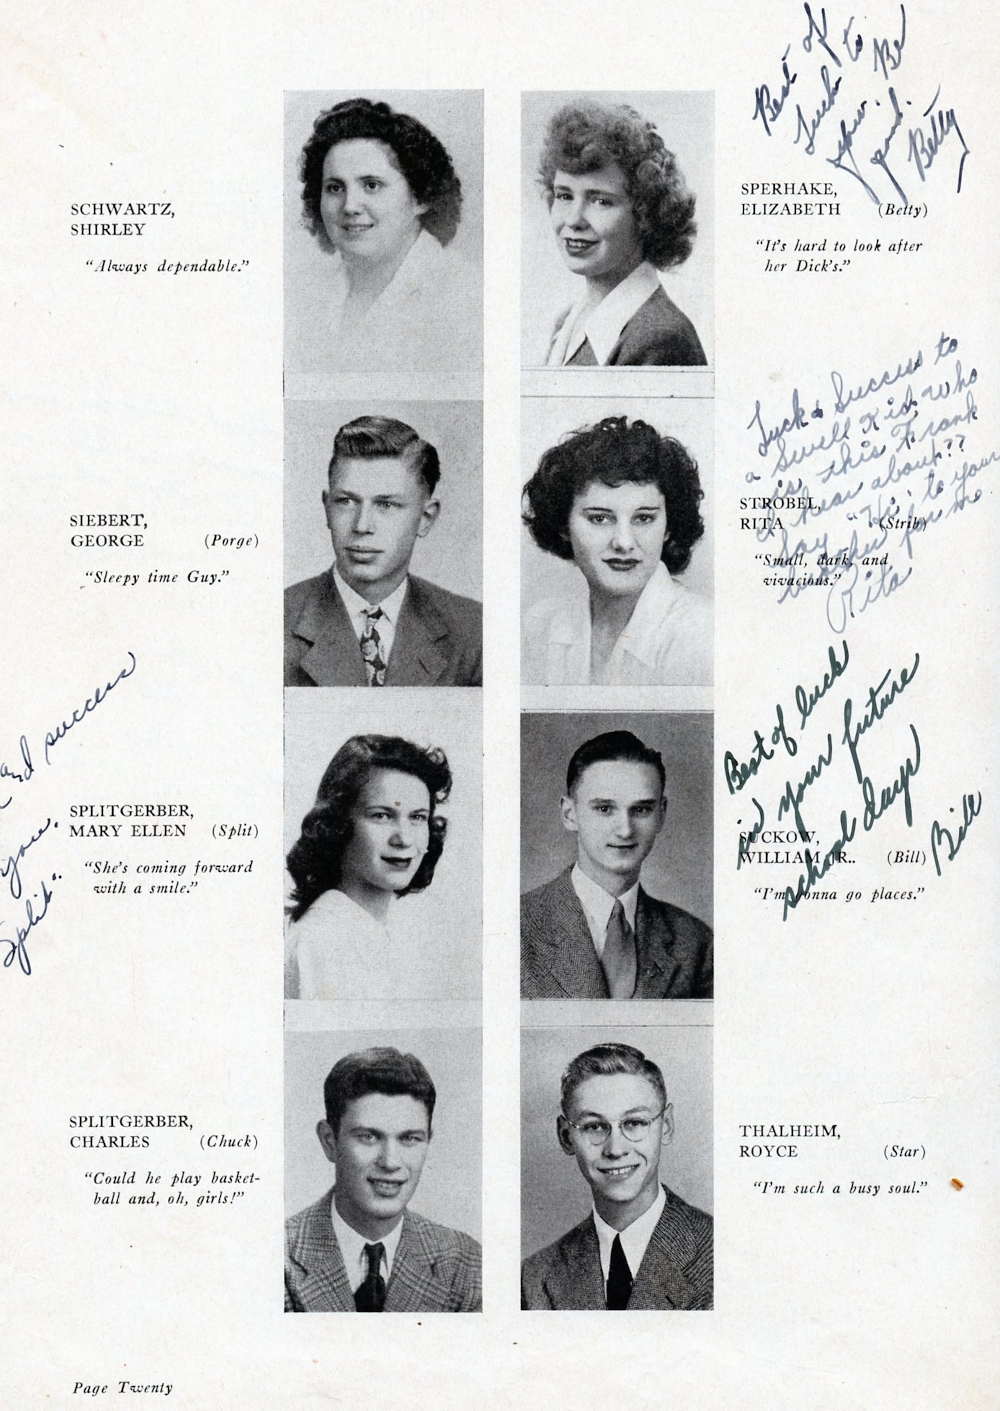 SCHWARTZ,
SHIRLEY
"Always dependable."
SIEBERT,
GEORGE (Porge)
"Sleepy time Guy."
and success
you.
Split".
SPLITGERBER,
MARY ELLEN (Split)
"She's coming forward
with a smile."
SPLITGERBER,
CHARLES (Chuck)
"Could he play basket-
ball and, oh, girls!"
Best of
Luck to
you. Be
good.
Betty
SPERHAKE,
ELIZABETH (Betty)
"It's hard to look after
her Dick's."
Luck & Success to
a Swell Kid. Who
is this Frank
I hear about??
Say "Hi" to your
for me
Rita
STROBEL,
RITA (Strib)
"Small, dark, and
vivacious."
Best of luck
in your future
school days
Bill
SUCKOW,
WILLIAM JR.. (Bill)
"I'm gonna go places."
THALHEIM,
ROYCE (Star)
"I'm such a busy soul."
Page Twenty